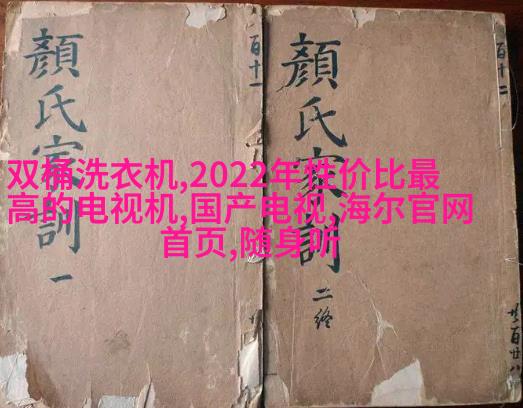 顔氏家訓
一
百十一
顔氏家訓
二終
百十二
廿百廿八
双桶洗衣机,2022年性价比最
高的电视机,国产电视,海尔官网
首页,随身听